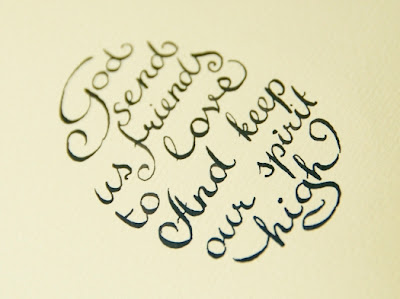 God
send
us friends
to love
And keep
our spirit
high